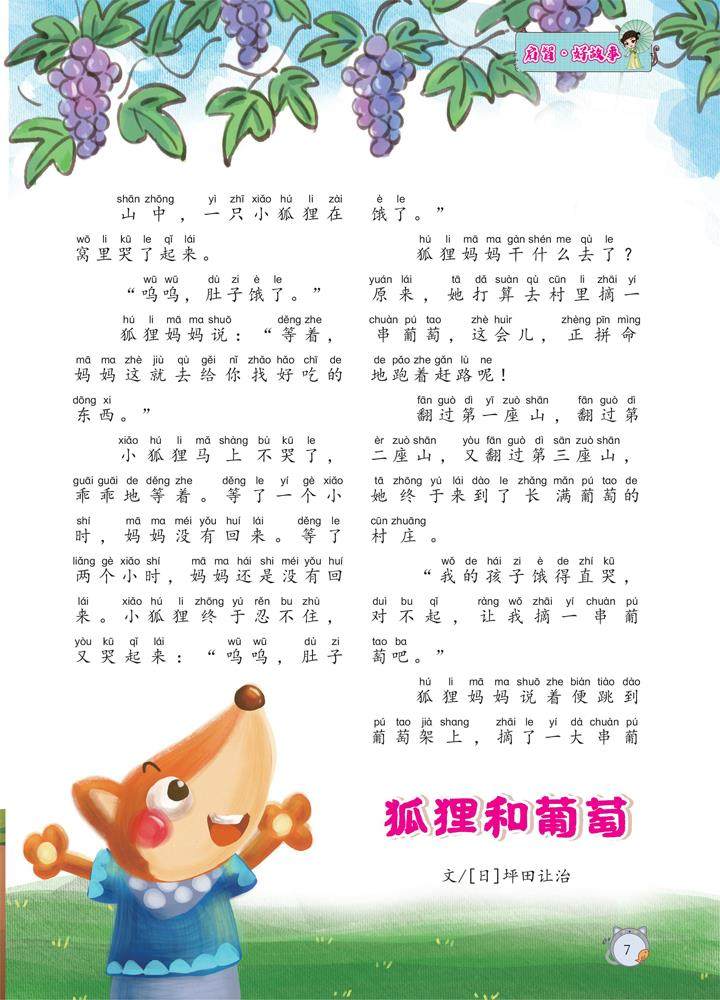 启智·好故事
shān zhōng yì zhī xiǎo hú li zài
山中，一只小狐狸在
wō li kū le qǐ lái
窝里哭了起来。
wū wū dù zi è le
“呜呜，肚子饿了。”
hú li mā ma shuō děng zhe
狐狸妈妈说：“等着，
mā ma zhè jiù qù gěi nǐ zhǎo hǎo chī de
妈妈这就去给你找好吃的
dōng xi
东西。”
xiǎo hú li mǎ shàng bù kū le
小狐狸马上不哭了，
guāi guāi de děng zhe děng le yí gè xiǎo
乖乖地等着。等了一个小
shí mā ma méi yǒu huí lái děng le
时，妈妈没有回来。等了
liǎng gè xiǎo shí mā ma hái shi méi yǒu huí
两个小时，妈妈还是没有回
lái xiǎo hú li zhōng yú rěn bu zhù
来。小狐狸终于忍不住，
yòu kū qǐ lái wū wū dù zi
又哭起来：“呜呜，肚子
è le
饿了。”
hú li mā ma gàn shén me qù le
狐狸妈妈干什么去了？
yuán lái tā dǎ suàn qù cūn li zhāi yí
原来，她打算去村里摘一
chuàn pú tao zhè huìr zhèng pīn mìng
串葡萄，这会儿，正拼命
de pǎo zhe gǎn lù ne
地跑着赶路呢！
fān guò dì yī zuò shān fān guò dì
翻过第一座山，翻过第
èr zuò shān yòu fān guò dì sān zuò shān
二座山，又翻过第三座山，
tā zhōng yú lái dào le zhǎng mǎn pú tao de
她终于来到了长满葡萄的
cūn zhuāng
村庄。
wǒ de hái zi è de zhí kū
“我的孩子饿得直哭，
duì bu qǐ ràng wǒ zhāi yí chuàn pú
对不起，让我摘一串葡
tao ba
萄吧。”
hú li mā ma shuō zhe biàn tiào dào
狐狸妈妈说着便跳到
pú tao jià shang zhāi le yí dà chuàn pú
葡萄架上，摘了一大串葡
狐狸和葡萄
文/[日]坪田让治
7